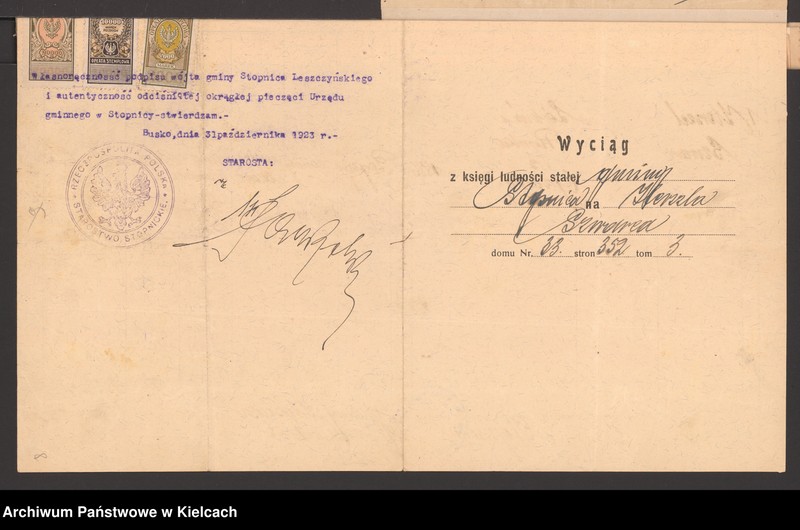 Własnoręczność podpisu wójta gminy Stopnica Leszczyńskiego
i autentyczność odciśniętej okrągłej pieczęci Urzędu
gminnego w Stopnicy-stwierdzam.-
Busko,dnia 31października 1923 r.-
STAROSTA:
RZECZPOSPOLITA POLSKA
STAROSTWO STOPNICKIE
Wyciąg
z księgi ludności stałej gminy
Stopnica na Herszla
Szwarca
domu Nr. 33. stron 352 tom 3.
Archiwum Państwowe w Kielcach